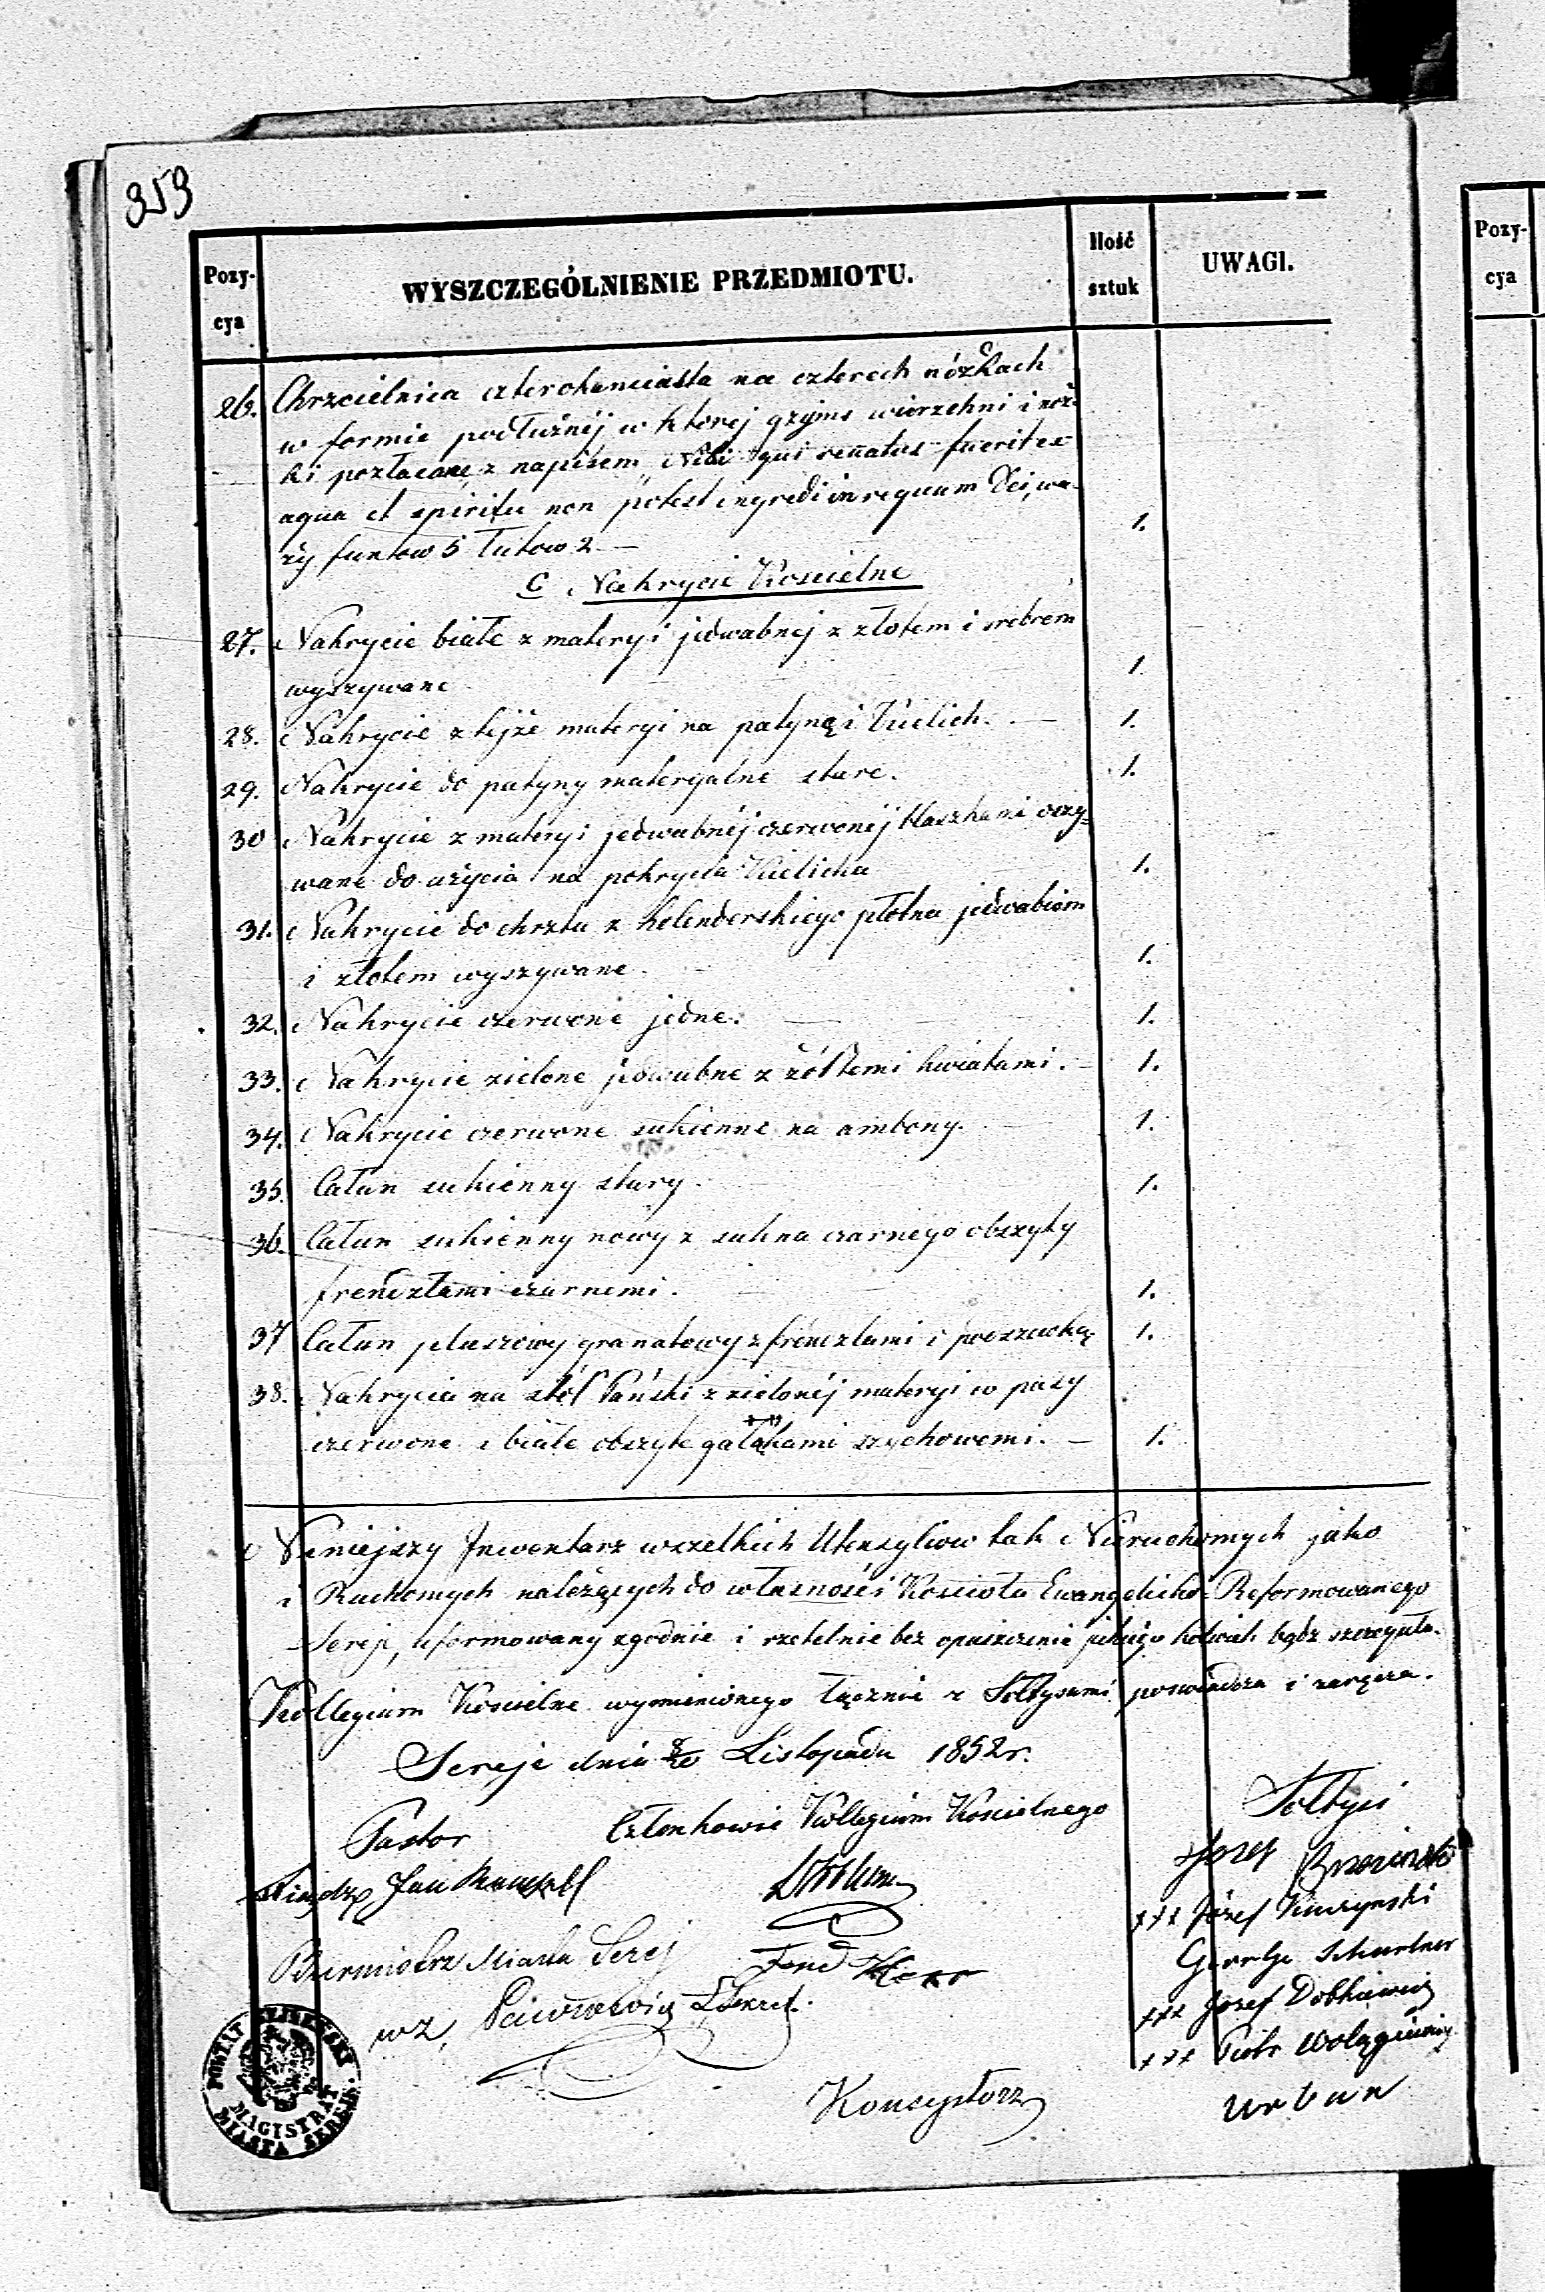 353
Pozy-
cya
WYSZCZEGÓLNIENIE PRZEDMIOTU.
Ilość
sztuk
UWAGI.
Pozy-
cya
26. Chrzcielnica czterokanciasta na czterech nóżkach
w formie podłużnéj w ktorej gzyms wierzchni i nóż-
ki pozłacane, z napisem, Nisi qui renatus fuerit ex
aqua et spiritu non potest ingredi in regnum Dei, wa-
ży funtow 5 łutow 2 — 1.
C Nakrycie Koscielne
27. Nakrycie białe z materyi jedwabnej z złotem i srebrem
wyszywane 1.
28. Nakrycie z tejże materyi na patynę i Kielich. — 1.
29. Nakrycie do patyny materyalne stare. 1.
30 Nakrycie z materyi jedwabnéj czerwonéj blaszkami
wane do użycia na pokrycia Kielicha 1.
31. Nakrycie do chrztu z holenderskiego płótna jedwabiem
i złotem wyszywane. 1.
32. Nakrycie czerwone jedne. — 1.
33. Nakrycie zielone jedwabne z żółtemi kwiatami. — 1.
34. Nakrycie czerwone sukienne na ambony. 1.
35. Całun sukienny stary. 1.
36. Całun sukienny nowy z sukna czarnego obszyty
frendzlami czarnemi. 1.
37 Całun pluszowy granatowy z frendzlami i poszewką 1.
38. Nakrycia na stół Pański z zielonéj materyi w pasy
czerwone i białe obszyte galąkami szychowemi. — 1.
Niniejszy Inwentarz wszelkich Utensyliow tak Nieruchomych jako
i Ruchomych należących do własności Kościoła Ewangelicko-Reformowanego
Sereje, uformowany zgodnie i rzetelnie bez opuszczenia jakiego kolwiek bądź szczegułu.
Kollegium Koscielne wymienionego łącznie z Sołtysami poswiadcza i zaręcza.
Sereje dnia 8/20 Listopada 1852 r.
Pastor Członkowie Kollegium Koscielnego Sołtysi
Xiądz Jan Józef
+++ Józef
Burmistrz Miasta Serej Ferd
+++ Jozef Dobkiewicz
wz, Sekret.
+++ Piotr
Konsystorz
Urban
POWIAT SEJNEŃSKI
MAGISTRAT
MIASTA SEREJE.